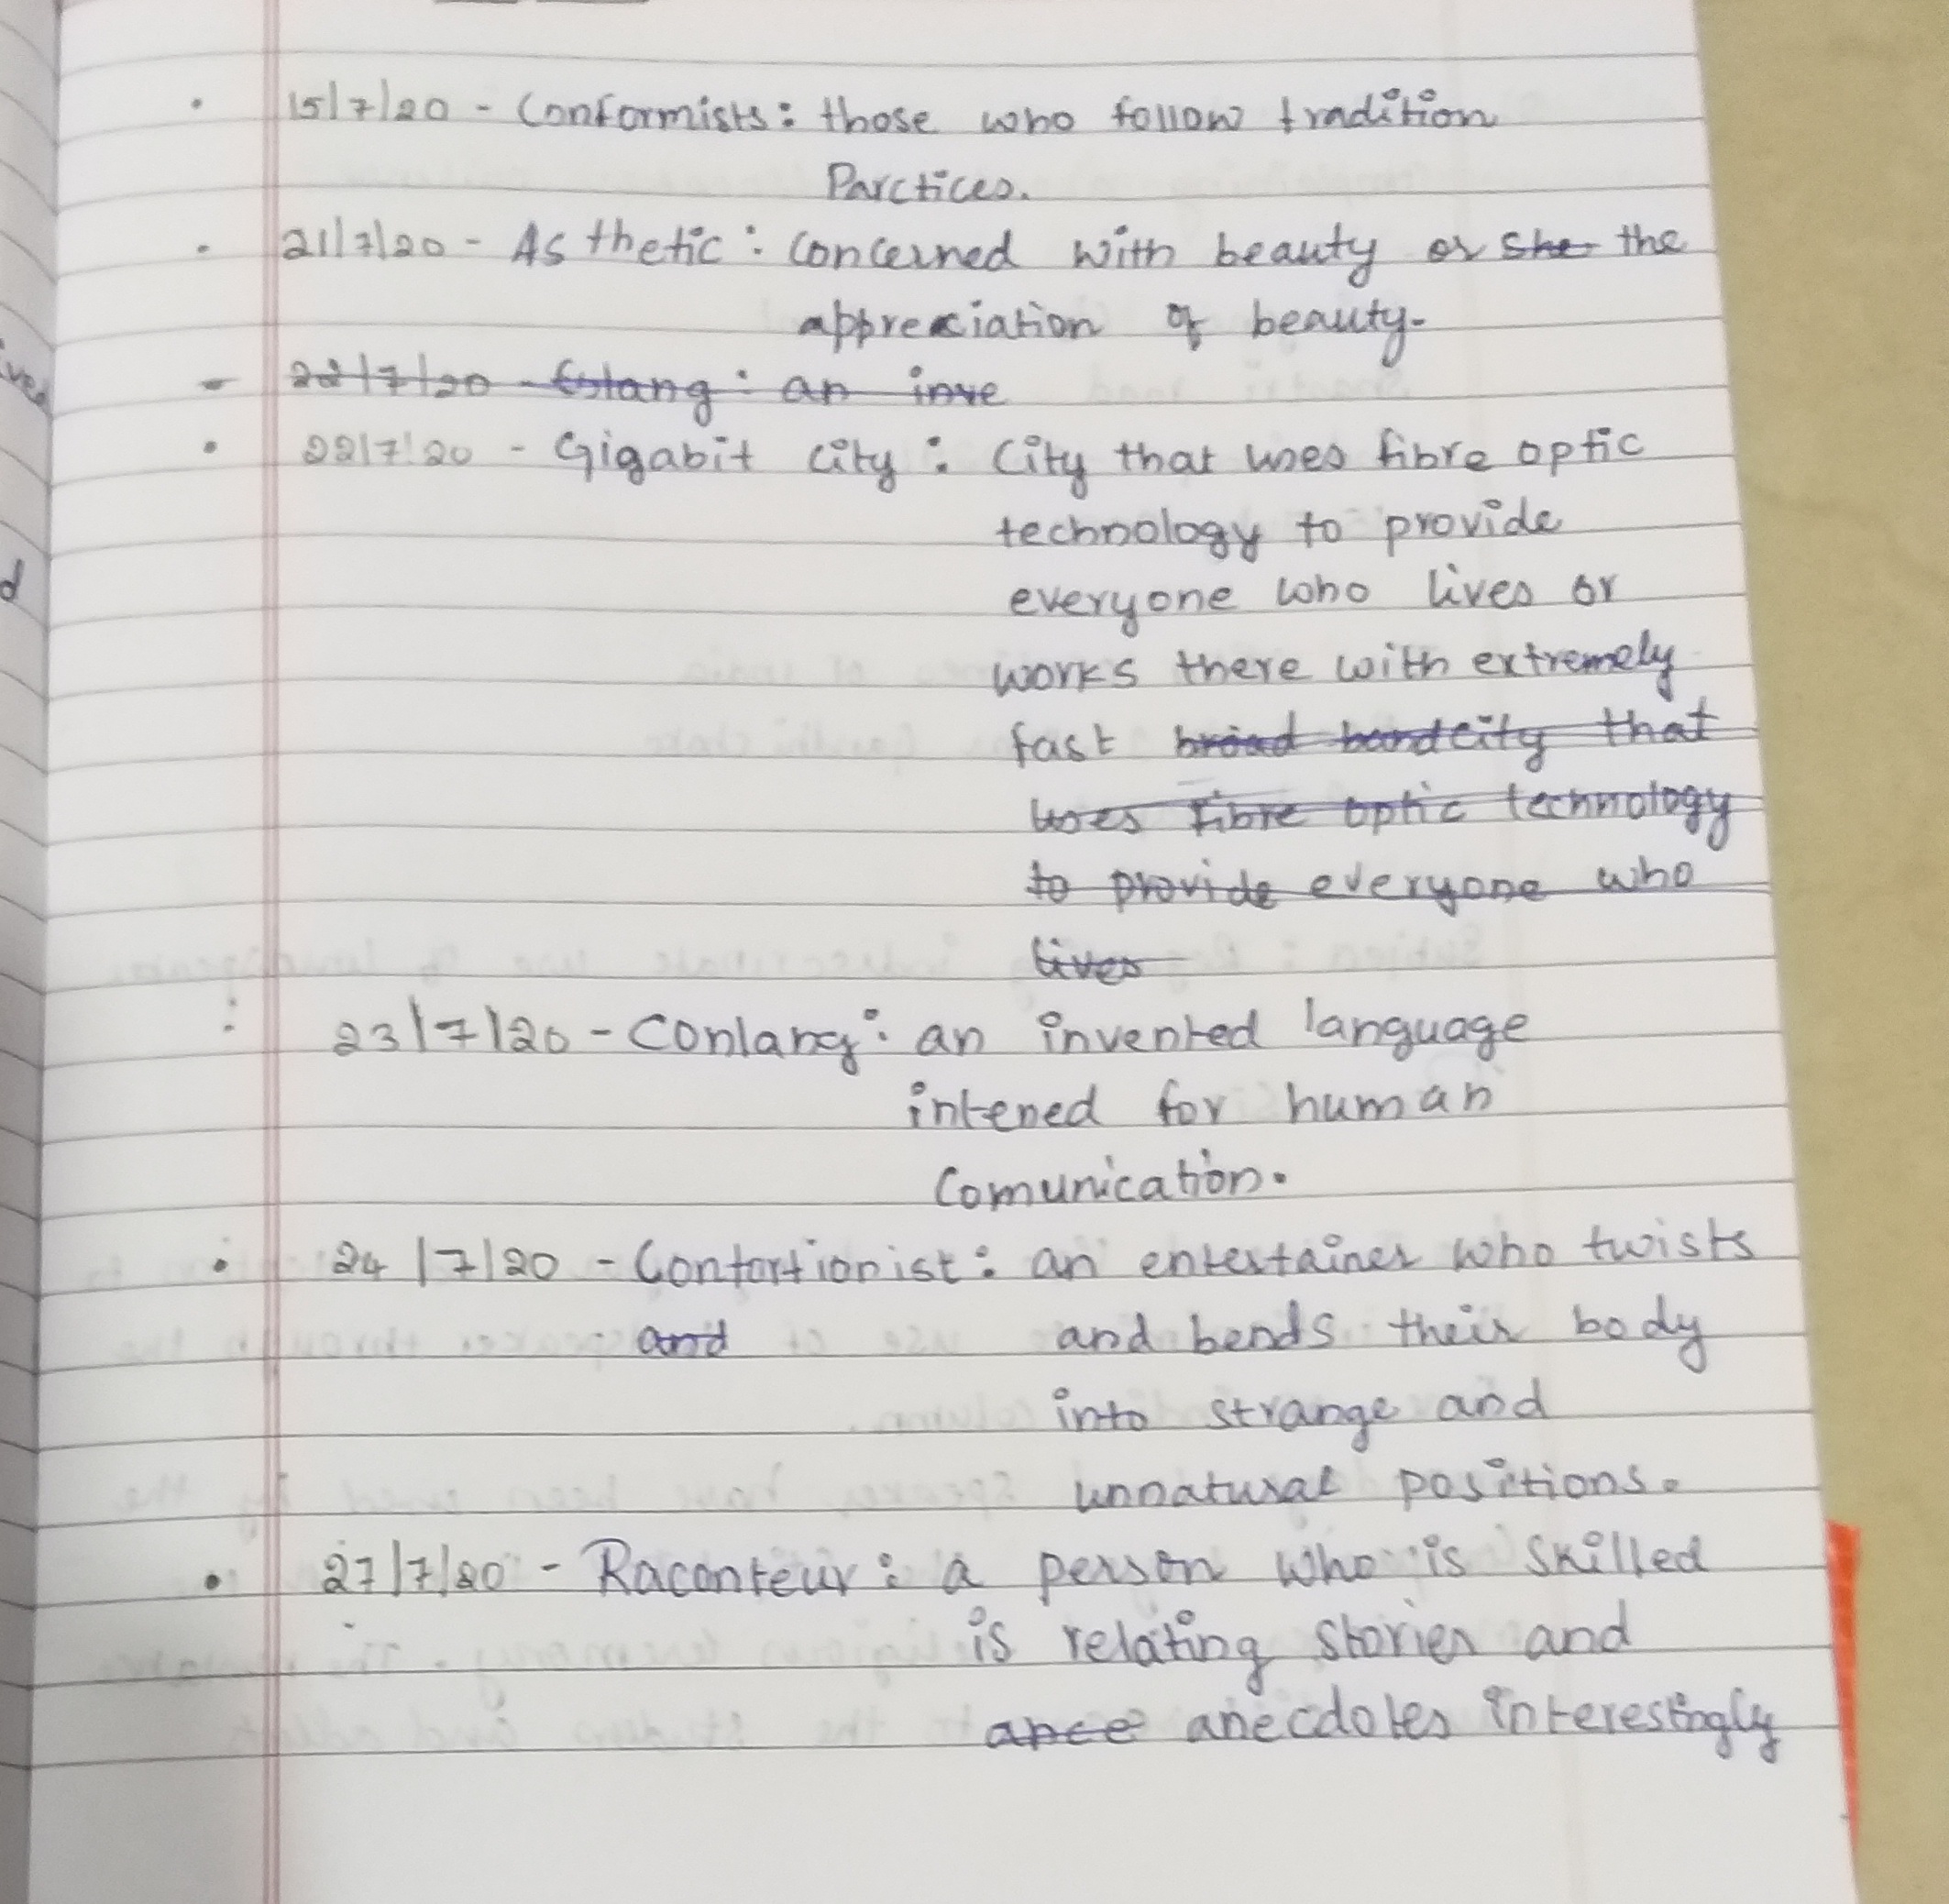 • 15/7/20 - Conformists: those who follow tradition
Parctices.
• 21/7/20 - Asthetic: Concerned with beauty or she the
appreciation of beauty.
- 22/7/20 - Colang: an inve
• 22/7/20 - Gigabit city: City that uses fibre optic
technology to provide
everyone who lives or
works there with extremely
fast broad band city that
uses fibre optic technology
to provide everyone who
lives
: 23/7/20 - Conlang: an invented language
intened for human
Comunication.
• 24/7/20 - Contortionist: an entertainer who twists
and and bends their body
into strange and
unnatural positions.
• 27/7/20 - Raconteur: a person who is skilled
is relating stories and
ance anecdotes interestingly